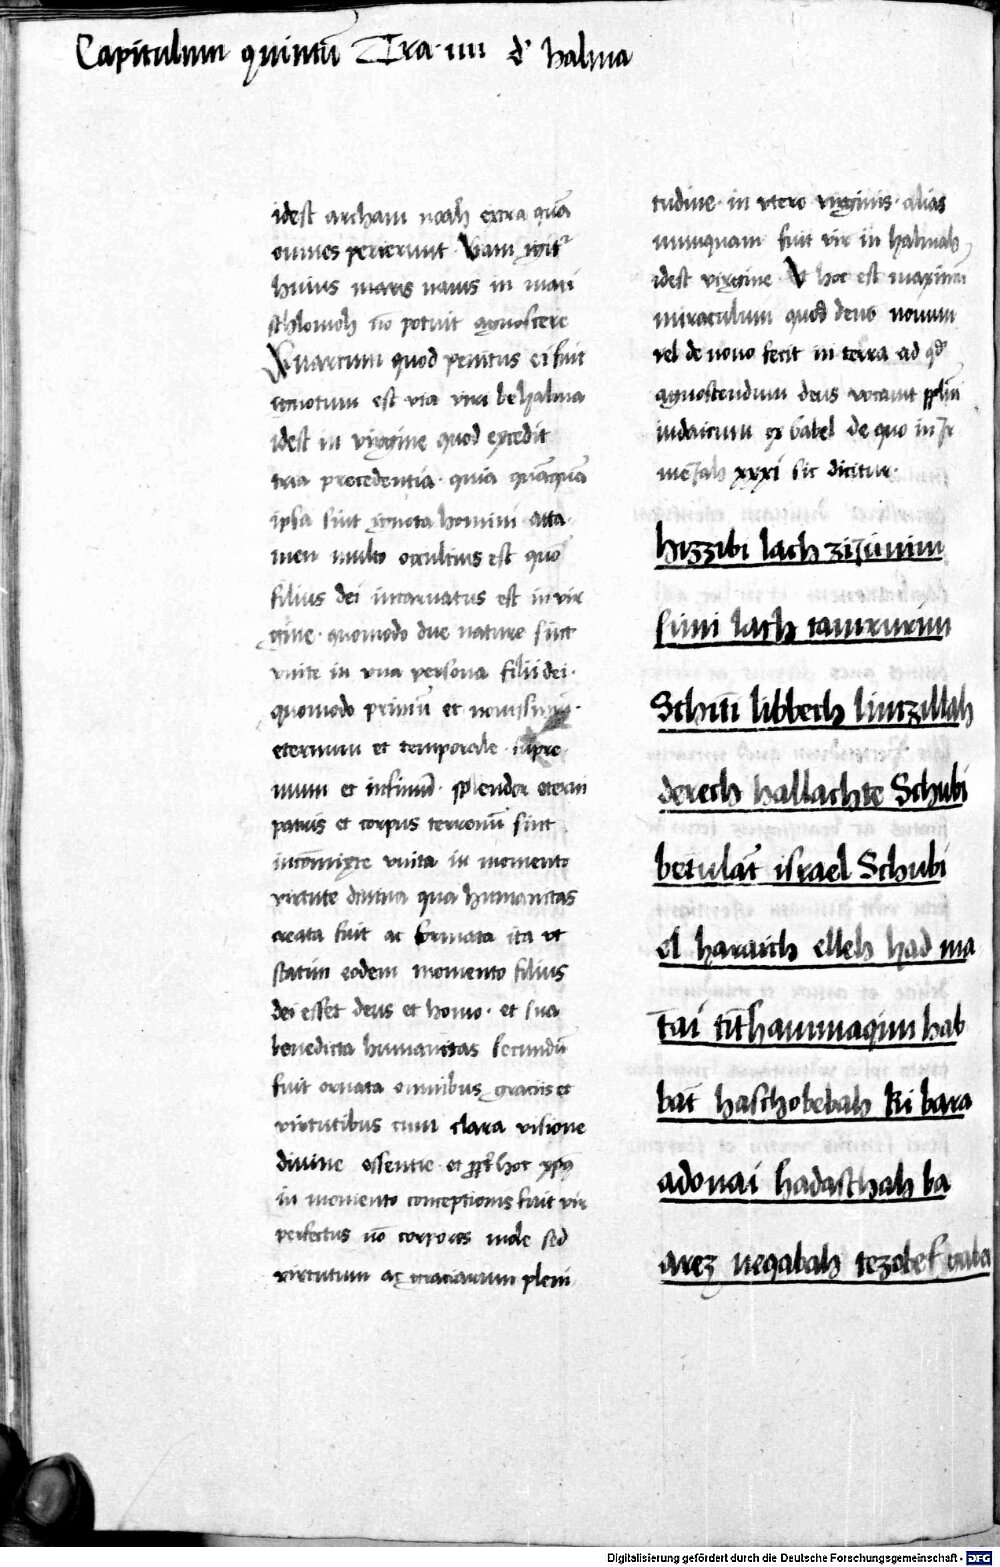 Capitulum quintū Tra· iiii d' halma
idest archam noah extra quā
omnes perierunt· Viam igit᷑
huius maris nauis in mari
schlomoh nō potuit agnoscere
Quartum quod penitus ei fuit
ignotum est via viri behalma
idest in virgine quod excedit
tria precedentia· quia quāquā
ipsa sint ignota homini atta
men multo occultius est quō
filius dei incarnatus est in vir
gine· quomodo due nature sint
vnite in vna persona filii dei·
quomodo primū et nouissimū·
eternum et temporale· supre
mum et infimū· splendor eterni
patris et corpus terrenū sint
incōmixte vnita in momento
virtute diuina qua humanitas
creata fuit ac formata ita vt
statim eodem momento filius
dei esset deus et homo· et sua
benedicta humanitas secundū
fuit ornata omnibus graciis et
virtutibus cum clara visione
diuine essentie· et ꝓpt᷑ hoc xpūs
in momento conceptionis fuit vir
perfectus nō corporis mole sed
virtutum ac graciarum pleni
tudine· in vtero virginis· alias
nunquam fuit vir in halmah
idest virgine Et hoc est maximū
miraculum quod deus nouum
vel de nouo fecit in terra ad qd'
agnoscendum deus vocauit ppłm
iudaicum ex babel de quo in Je
xxxi sic dicitur·
hizzibi lach ziiunim
simi lach tamrurim
Schiti libbech limzillah
derech hallachte Schubi
betulat israel Schubi
el haraich elleh had ma
tai tithammaqim hab
bat haschobebah ki bara
adonai hadaschah ba
arez neqabah tezobef